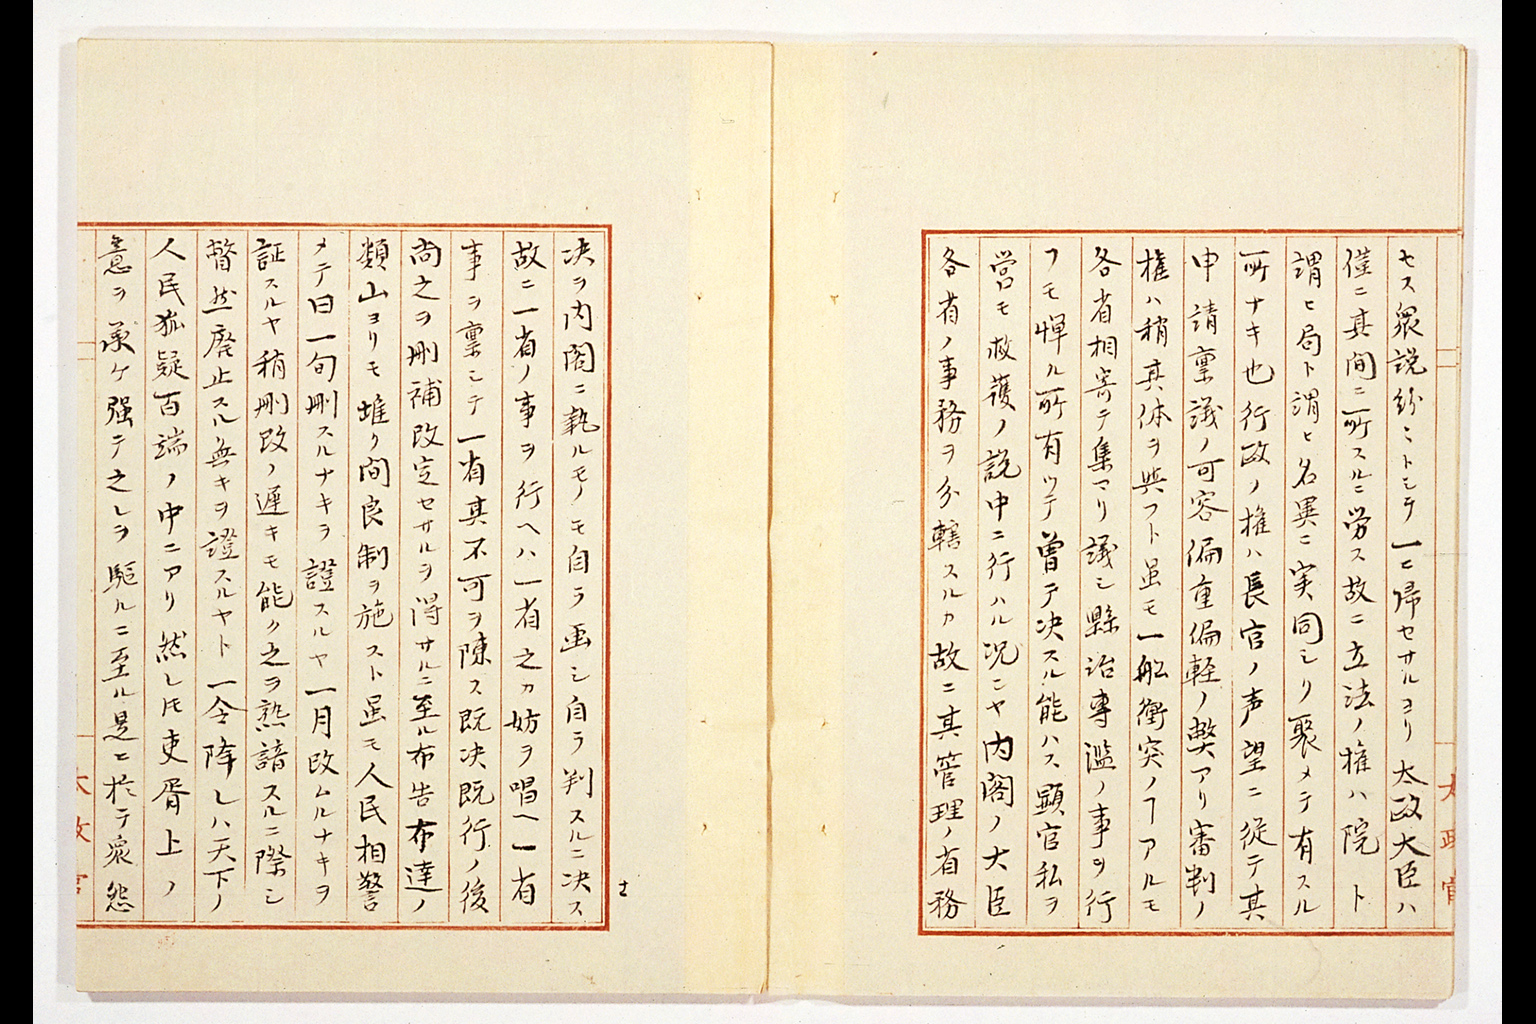 セス衆説紛〻トシテ一ニ帰セサルヨリ太政大臣ハ
僅ニ其間ニ所スルニ労ス故ニ立法ノ権ハ院ト
謂ヒ局ト謂ヒ名異ニ実同シリ聚メテ有スル
所ナキ也行政ノ権ハ長官ノ声望ニ従テ其
申請稟議ノ可容偏重偏軽ノ弊アリ審判ノ
権ハ稍其体ヲ與フト虽モ一舩衝突ノヿアルモ
各省相寄テ集マリ議シ縣治専濫ノ事ヲ行
フモ憚ル所有ツテ曽テ决スル能ハス顕官私ヲ
営モ救護ノ説中ニ行ハル况ニヤ内閣ノ大臣
各省ノ事務ヲ分轄スルカ故ニ其管理ノ省務
太政官
决ヲ内閣ニ執ルモノモ自ラ画シ自ラ判スルニ决ス
故ニ一省ノ事ヲ行ヘハ一省之カ妨ヲ唱ヘ一省
事ヲ稟シテ一省其不可ヲ陳ス既决既行ノ後
尚之ヲ刪補改定セサルヲ得サルニ至ル布告布達ノ
類山ヨリモ堆ク間良制ヲ施スト虽モ人民相警
メテ曰一旬刪スルナキヲ證スルヤ一月改ムルナキヲ
証スルヤ稍刪改ノ遅キモ能ク之ヲ熟諳スルニ際シ
瞥然廃止スル無キヲ證スルヤト一令降レハ天下ノ
人民狐疑百端ノ中ニアリ然レ𪜈吏胥上ノ
意ヲ承ケ强テ之レヲ駆ルニ至ル是ニ於テ衆怨
太政官